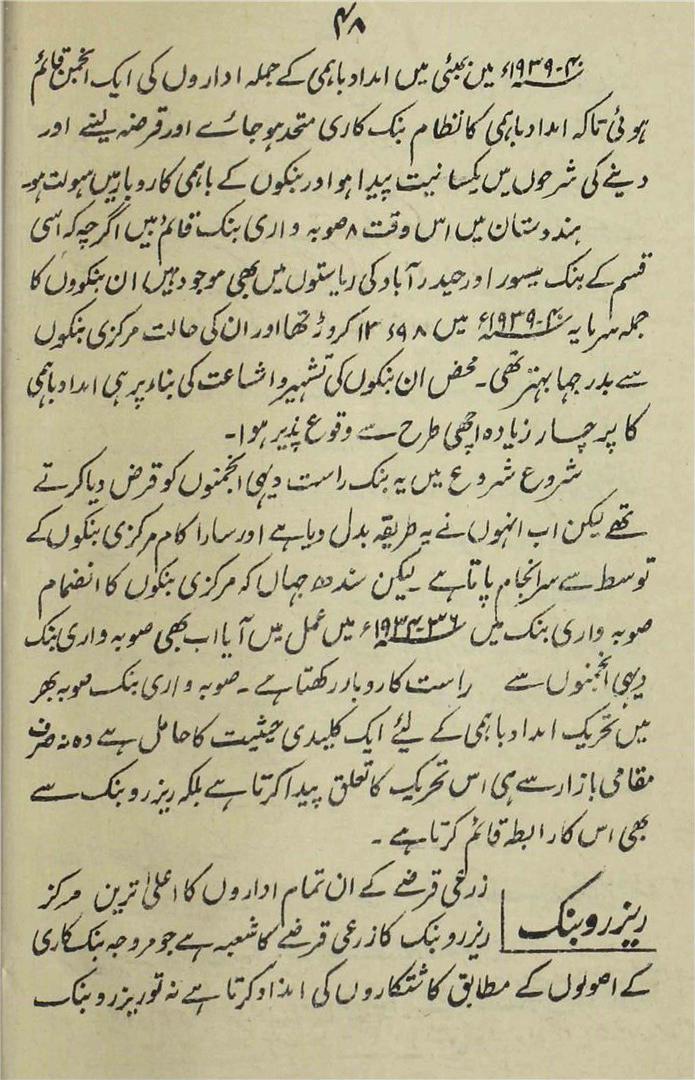 ۴۸
۴۰-۱۹۳۹ء میں بمبئی میں امداد باہمی کے جملہ اداروں کی ایک انجمن قائم
ہوئی تاکہ امداد باہمی کا نظام بنک کاری متحد ہو جائے اور قرضہ لینے اور
دینے کی شرحوں میں یکسانیت پیدا ہو اور بنکوں کے باہمی کاروبار میں سہولت ہو۔
ہندوستان میں اس وقت ۸ صوبہ واری بنک قائم ہیں اگرچہ کہ اسی
قسم کے بنک میسور اور حیدرآباد کی ریاستوں میں بھی موجود ہیں ان بنکووں کا
جملہ سرمایہ ۴۰-۱۹۳۹ء میں ۱۲ء۶۹۸ کروڑ تھا اور ان کی حالت مرکزی بنکوں
سے بدرجہا بہتر تھی۔ محض ان بنکوں کی تشہیر و اشاعت کی بناء پر ہی امداد باہمی
کا پرچار زیادہ اچھی طرح سے وقوع پذیر ہوا۔
شروع شروع میں یہ بنک راست دیہی انجمنوں کو قرض دیا کرتے
تھے لیکن اب انہوں نے یہ طریقہ بدل دیا ہے اور سارا کام مرکزی بنکوں کے
توسط سے سرانجام پاتا ہے۔ لیکن سندھ جہاں کہ مرکزی بنکوں کا انضمام
صوبہ واری بنک میں میں عمل میں آیا اب بھی صوبہ واری بنک
دیہی انجمنوں سے راست کاروبار رکھتا ہے۔ صوبہ واری بنک صوبہ بھر
میں تحریک امداد باہمی کے لئے ایک کلیدی حیثیت کا حامل ہے وہ نہ صرف
مقامی بازار سے ہی اس تحریک کا تعلق پیدا کرتا ہے بلکہ ریزرو بنک سے
بھی اس کا رابطہ قائم کرتا ہے۔
ریزرو بنک
زرعی قرضے کے ان تمام اداروں کا اعلیٰ ترین مرکز
ریزرو بنک کا زرعی قرضے کا شعبہ ہے جو مروجہ بنک کاری
کے اصولوں کے مطابق کاشتکاروں کی امداد کرتا ہے نہ تو ریزرو بنک